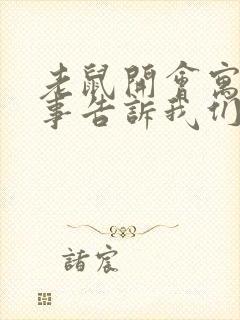 老鼠開會寓
事告訴我们
諸宸